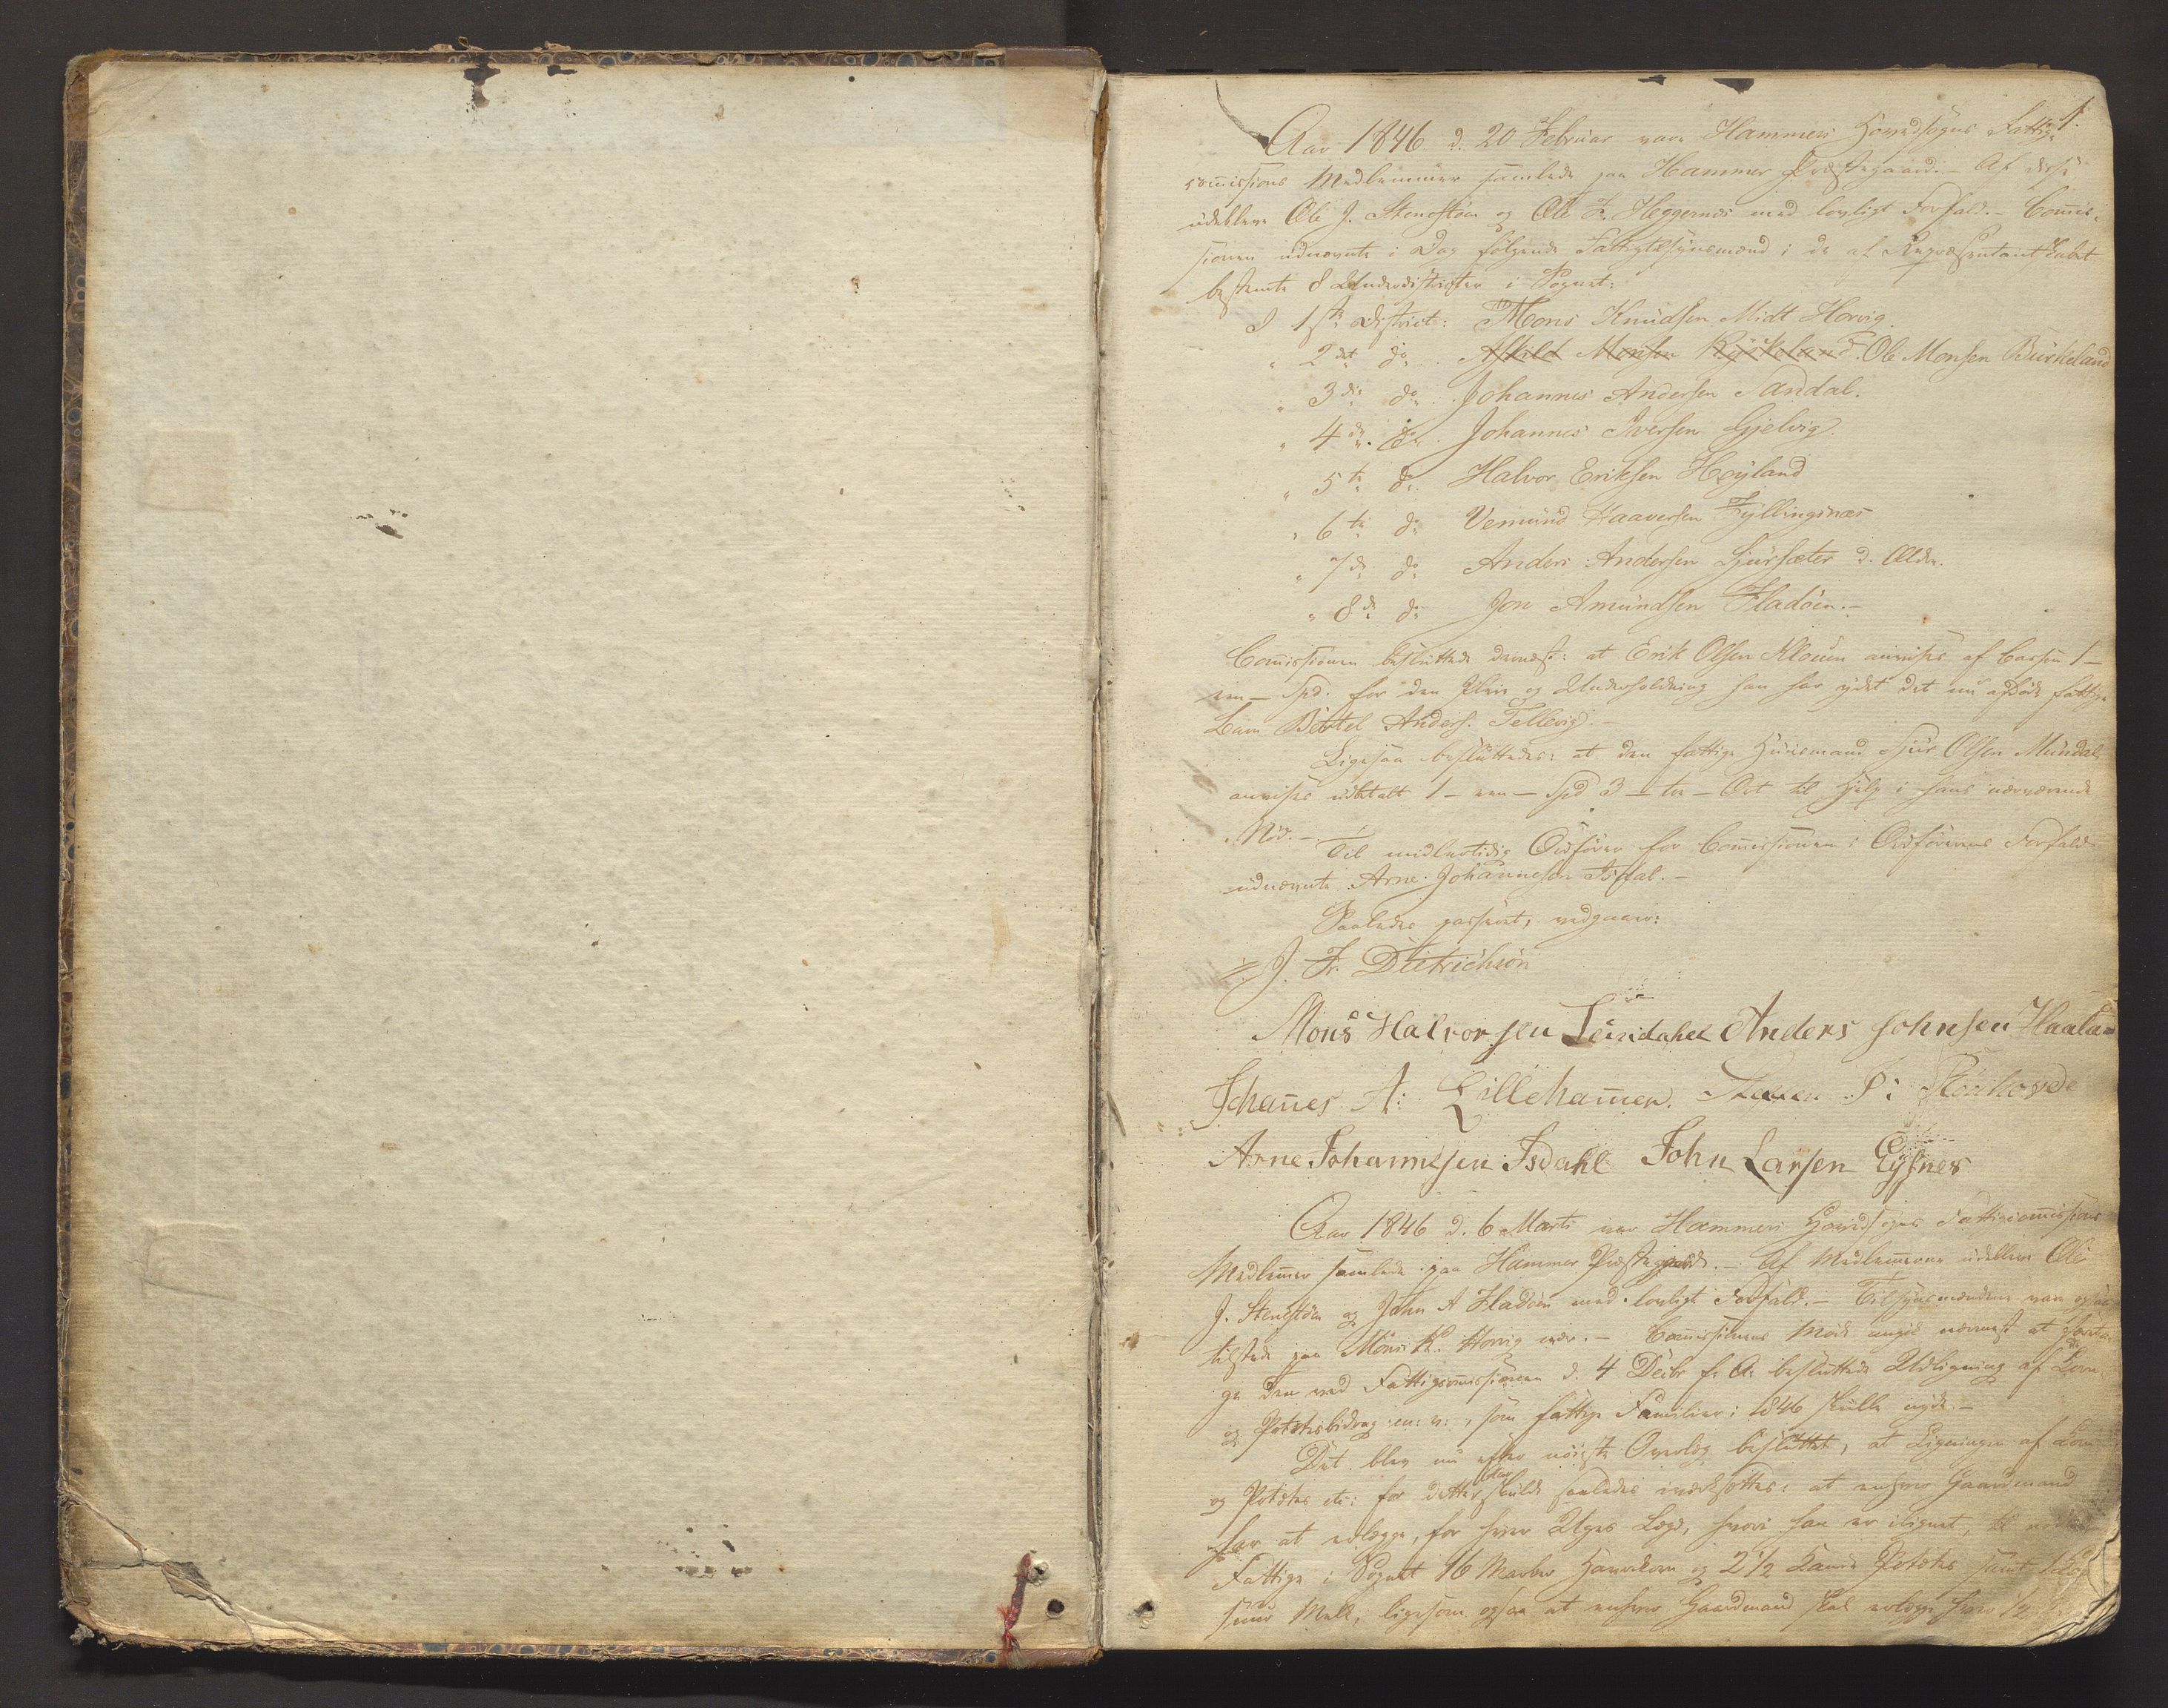 1.
Aar 1846 d. 20 Februar vare Hammers Hovedsogns Fattig-
commissions Medlemmer samlede paa Hammer Præstegaard. – Af disse
udebleve Ole J. Steenstøen og Ole F. Heggernæs med lovligt Forfald. – Commis-
sionen udnævnte i Dag følgende Fattigtilsynsmænd i de af Repræsentantskabet
bestemte 8 Underdistricter i Sognet:
I 1ste District: Mons Knudsen Midt Horvig
" 2det do. Askild Monsen Byrkeland. Ole Monsen Bürkeland
" 3die do. Johannes Andersen Sandal.
" 4de do. Johannes Iversen Gjelvig.
" 5te do. Halvor Eriksen Høyland
" 6te do. Vemund Haaversen Fyllingsnæs
" 7de do. Anders Andersen Sjursæter d. Ældre.
" 8de do. Jon Amundsen Fladøen. –
Commissionen besluttede dernæst: at Erik Olsen Kloum anvises af Cassen 1 –
een – Spd. for den Pleie og Underholdning han har ydet det nu afdøde fattige
Barn Bertel Anders. Tellevig. –
Ligesaa besluttedes: at den fattige Huusmand Sjur Olsen Mundal
anvises udbetalt 1 – een – Spd 3 – tre – Ort til Hjelp i hans nærværende
Nød. –
Til midlertidig Ordfører for Commissionen i Ordførerens Forfald
udnævnte Arne Johannesen Isdal. –
Saaledes passeret, vedgaaer:
J. Fr. Dietrichson
Mons Halvorsen Tündahel Anders Johnsen Haaland
Johanes A: Lillehamer. P:
Arne Johannesen Isdahl John Larsen Eysnes
Aar 1846 d. 6 Marts var Hammers Hovedsogns Fattigcommissions
Medlemer samlede paa Hammer Præstegaard. – Af Medlemerne udebleve Ole
J. Steenstøen og John A Fladøen med lovligt Forfald. – Tilsynsmændene var ogsaa
tilstede paa Mons K. Horvig nær. – Commissionens Møde angik nærmest at foreta-
ge den ved Fattigcommissionen d. 4 Decbr f. A. besluttede Udligning af Korn
og Potetesbidrag m: v:, som fattige Familier i 1846 skulle nyde –
Det blev nu efter nøieste Overlæg besluttet, at Ligningen af Korn
og Potetes etc: for dette Aar skulde saaledes iværksættes: at enhver Gaardmand
har at erlægge, for hver Uges Lægd, hvori han er ilignet, til
Fattige i Sognet 16 Marker Havrekorn og 2 1/2 Kande Potetes samt
suur Melk, ligesom ogsaa at enhver Gaardmand skal erlægge hver 1/2